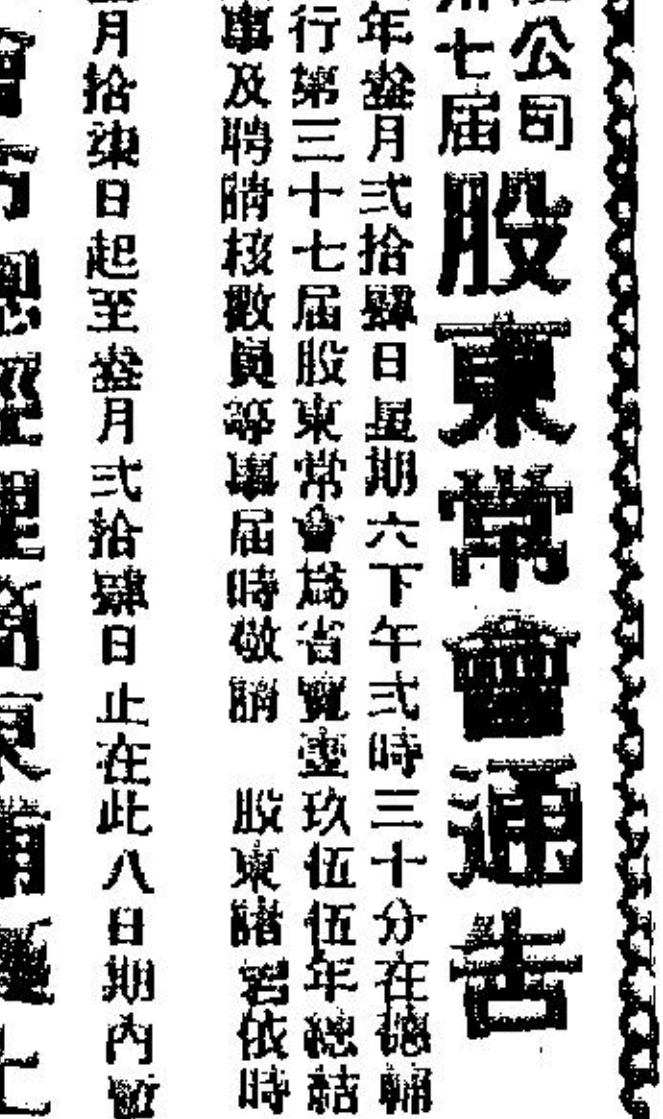 公司
七屆股東常會通告
年叁月弍拾肆日星期六下午弍時三十分在德輔
行第三十七屆股東常會爲省覽壹玖伍伍年總結
事及聘請核數員等事屆時敬請 股東諸君依時
月拾柒日起至叁月弍拾肆日止在此八日期內暫
會 總經理 東